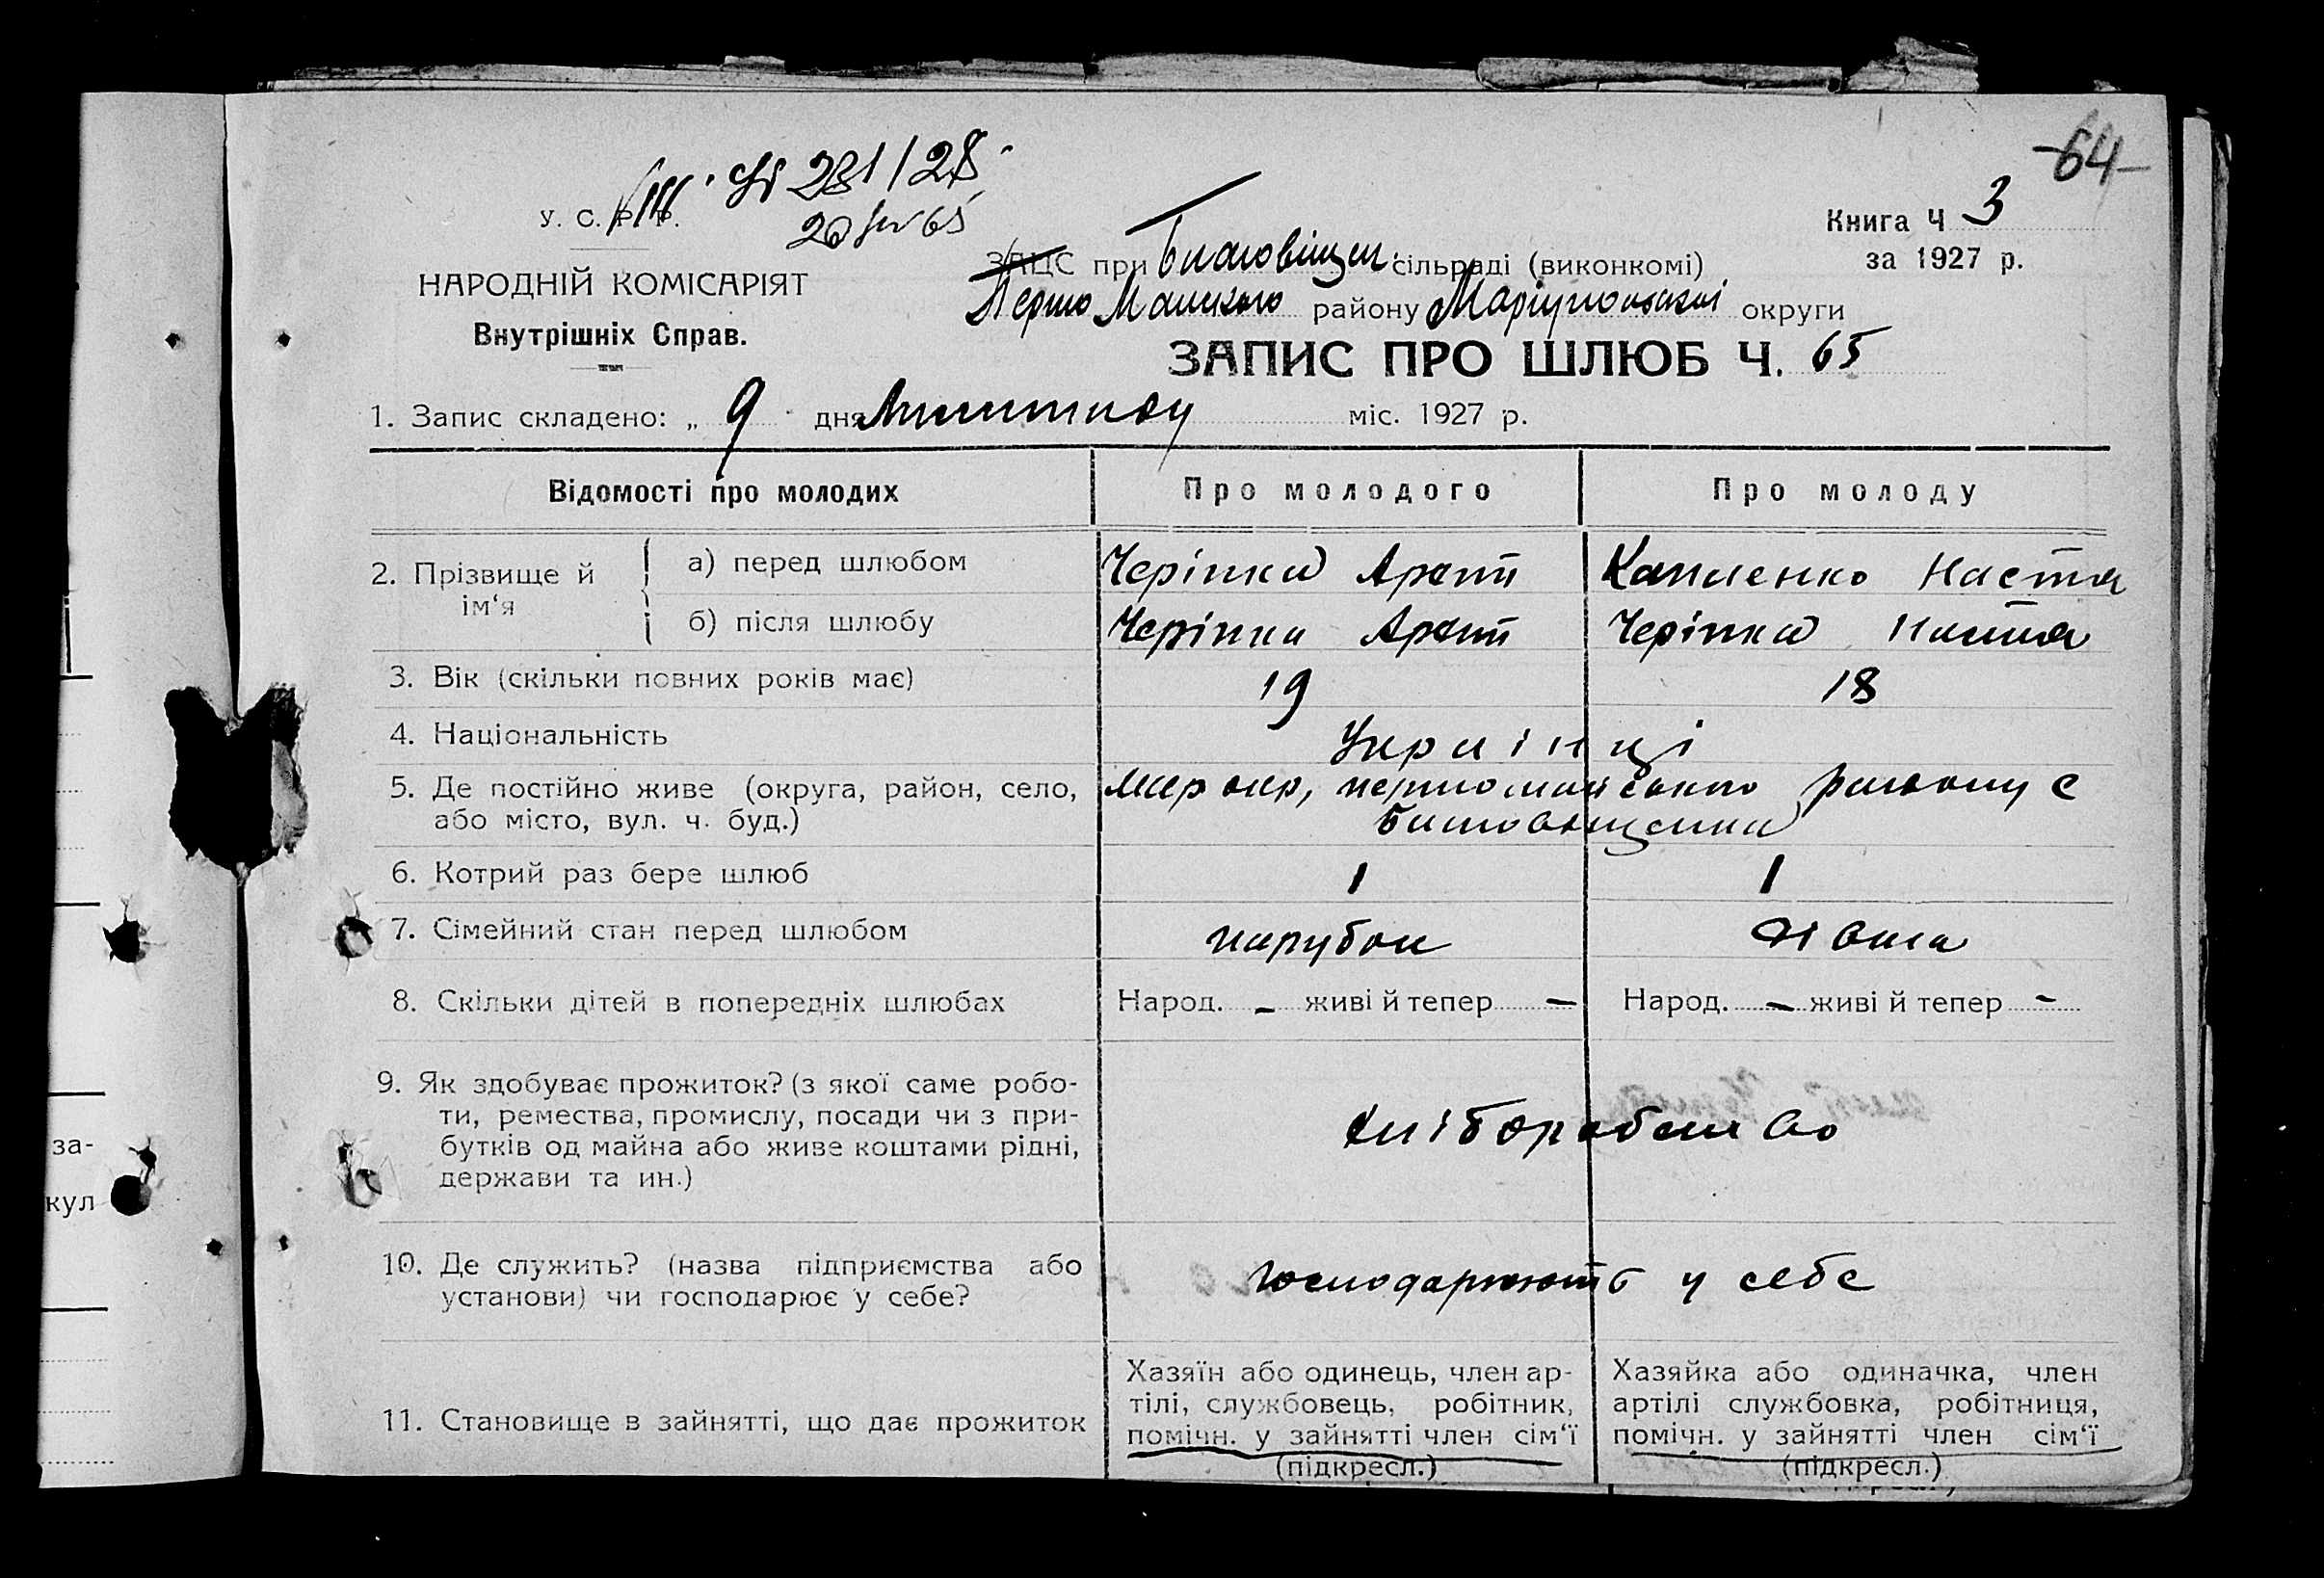 64
231/28
У. С. Р. Р.
20 65
Книга Ч 3
ЗАЦС при Благовіщен. сільраді (виконкомі)
за 1927 р.
НАРОДНІЙ КОМІСАРІЯТ
Перво Майського району Маріупольської округи
Внутрішніх Справ.
ЗАПИС ПРО ШЛЮБ Ч. 65
1. Запис складено: „ 9 дня Листопаду міс. 1927 р.
Відомості про молодих
Про молодого
Про молоду
2. Прізвище й ім‘я
а) перед шлюбом
Черіпка
Настя
б) після шлюбу
Черіпка
Черіпка Настя
3. Вік (скільки повних років має)
19
18
4. Національність
Українці
5. Де постійно живе (округа, район, село,
Мар окр, первомайського району с
або місто, вул. ч. буд.)
6. Котрий раз бере шлюб
1
1
7. Сімейний стан перед шлюбом
парубок
дівка
8. Скільки дітей в попередніх шлюбах
Народ. – живі й тепер –
Народ. – живі й тепер –
9. Як здобуває прожиток? (з якої саме робо-
ти, ремества, промислу, посади чи з при-
хліборобство
бутків од майна або живе коштами рідні,
держави та ин.)
10. Де служить? (назва підприємства або
установи) чи господарює у себе?
господарюють у себе
11. Становище в зайнятті, що дає прожиток
Хазяїн або одинець, член ар-
тілі, службовець, робітник,
помічн. у зайнятті член сім‘ї
(підкресл.)
Хазяйка або одиначка, член
артілі службовка, робітниця,
помічн. у зайнятті член сім‘ї
(підкресл.)
за-
кул